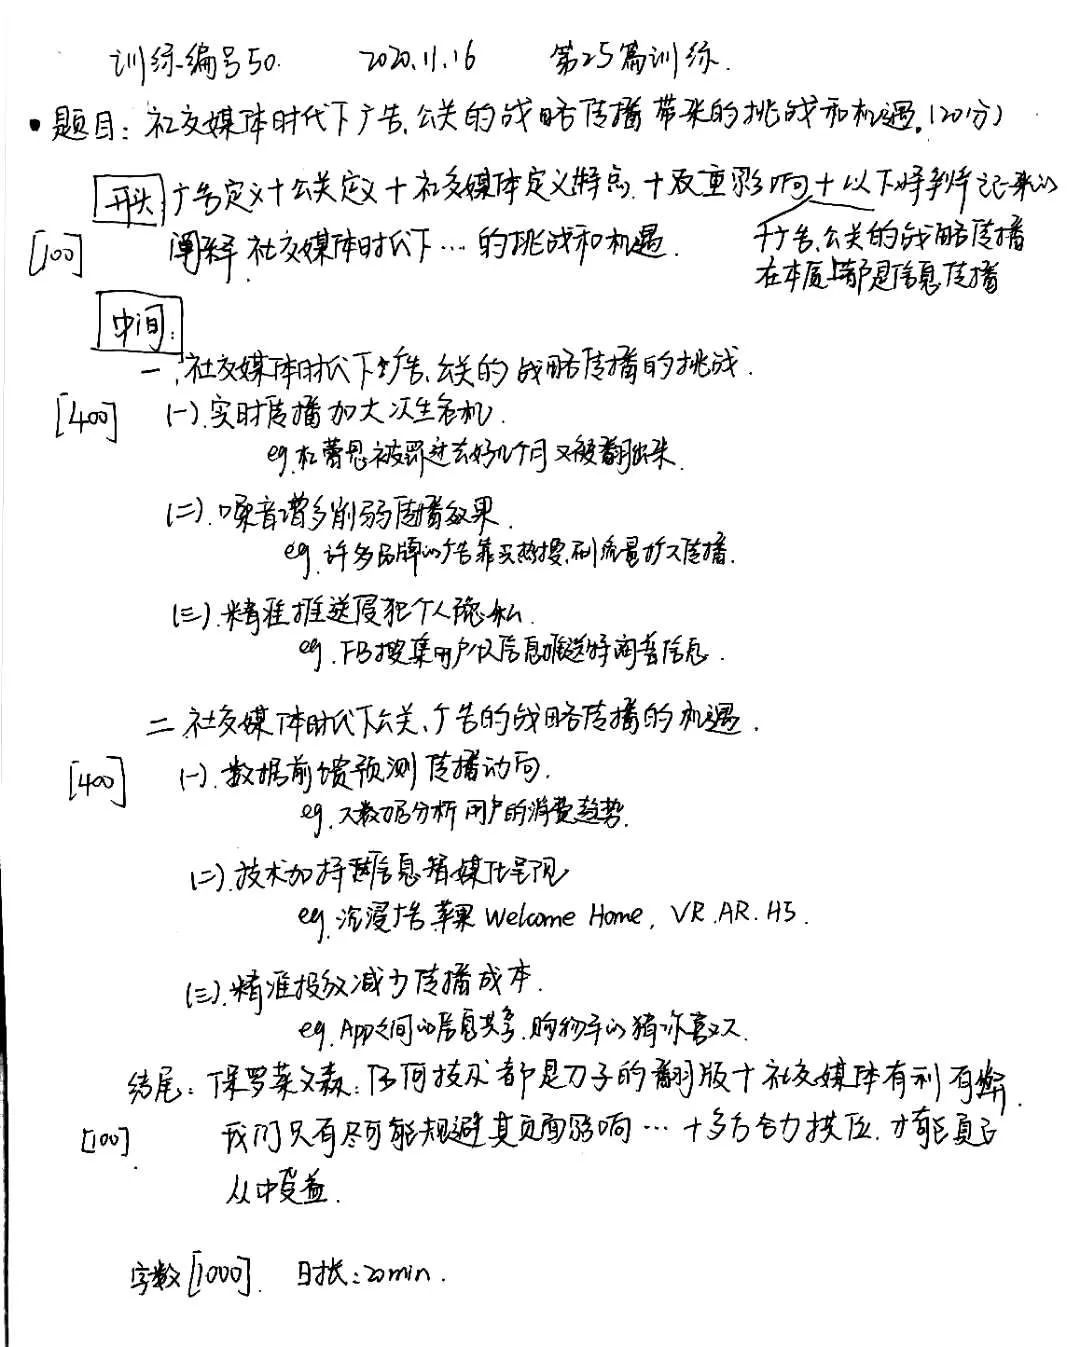 训练编号50. 2020.11.16 第25篇训练.
• 题目: 社交媒体时代下广告、公关的战略传播带来的挑战和机遇. (20分)
开头: 广告定义+公关定义+社交媒体定义/特点.+双重影响+以下将
[100] 阐释社交媒体时代下…的挑战和机遇.
广告、公关的战略传播
在本质上都是信息传播
中间:
一、社交媒体时代下广告、公关的战略传播的挑战.
[400] (一).实时传播加大次生危机.
eg.杜蕾思被罚过去好几个月又被翻出来.
(二).噪音增多削弱传播效果.
eg.许多品牌的广告靠买热搜、刷流量扩大传播.
(三).精准推送侵犯个人隐私.
eg.FB搜集用户信息推送特阅者信息.
二、社交媒体时代下公关、广告的战略传播的机遇.
[400] (一).数据前馈预测传播动向.
eg.大数据分析用户的消费趋势.
(二).技术加持 信息智媒化呈现
eg.沉浸广告.苹果 Welcome Home, VR.AR.H5.
(三).精准投放减少传播成本.
eg.App之间的信息共享.购物车的猜你喜欢.
结尾: 保罗莱文森: 任何技术都是刀子的翻版+社交媒体有利有弊.
[100]. 我们只有尽可能规避其负面影响…+多方合力拱位.才能真正
从中受益.
字数[1000]. 时长:20min.